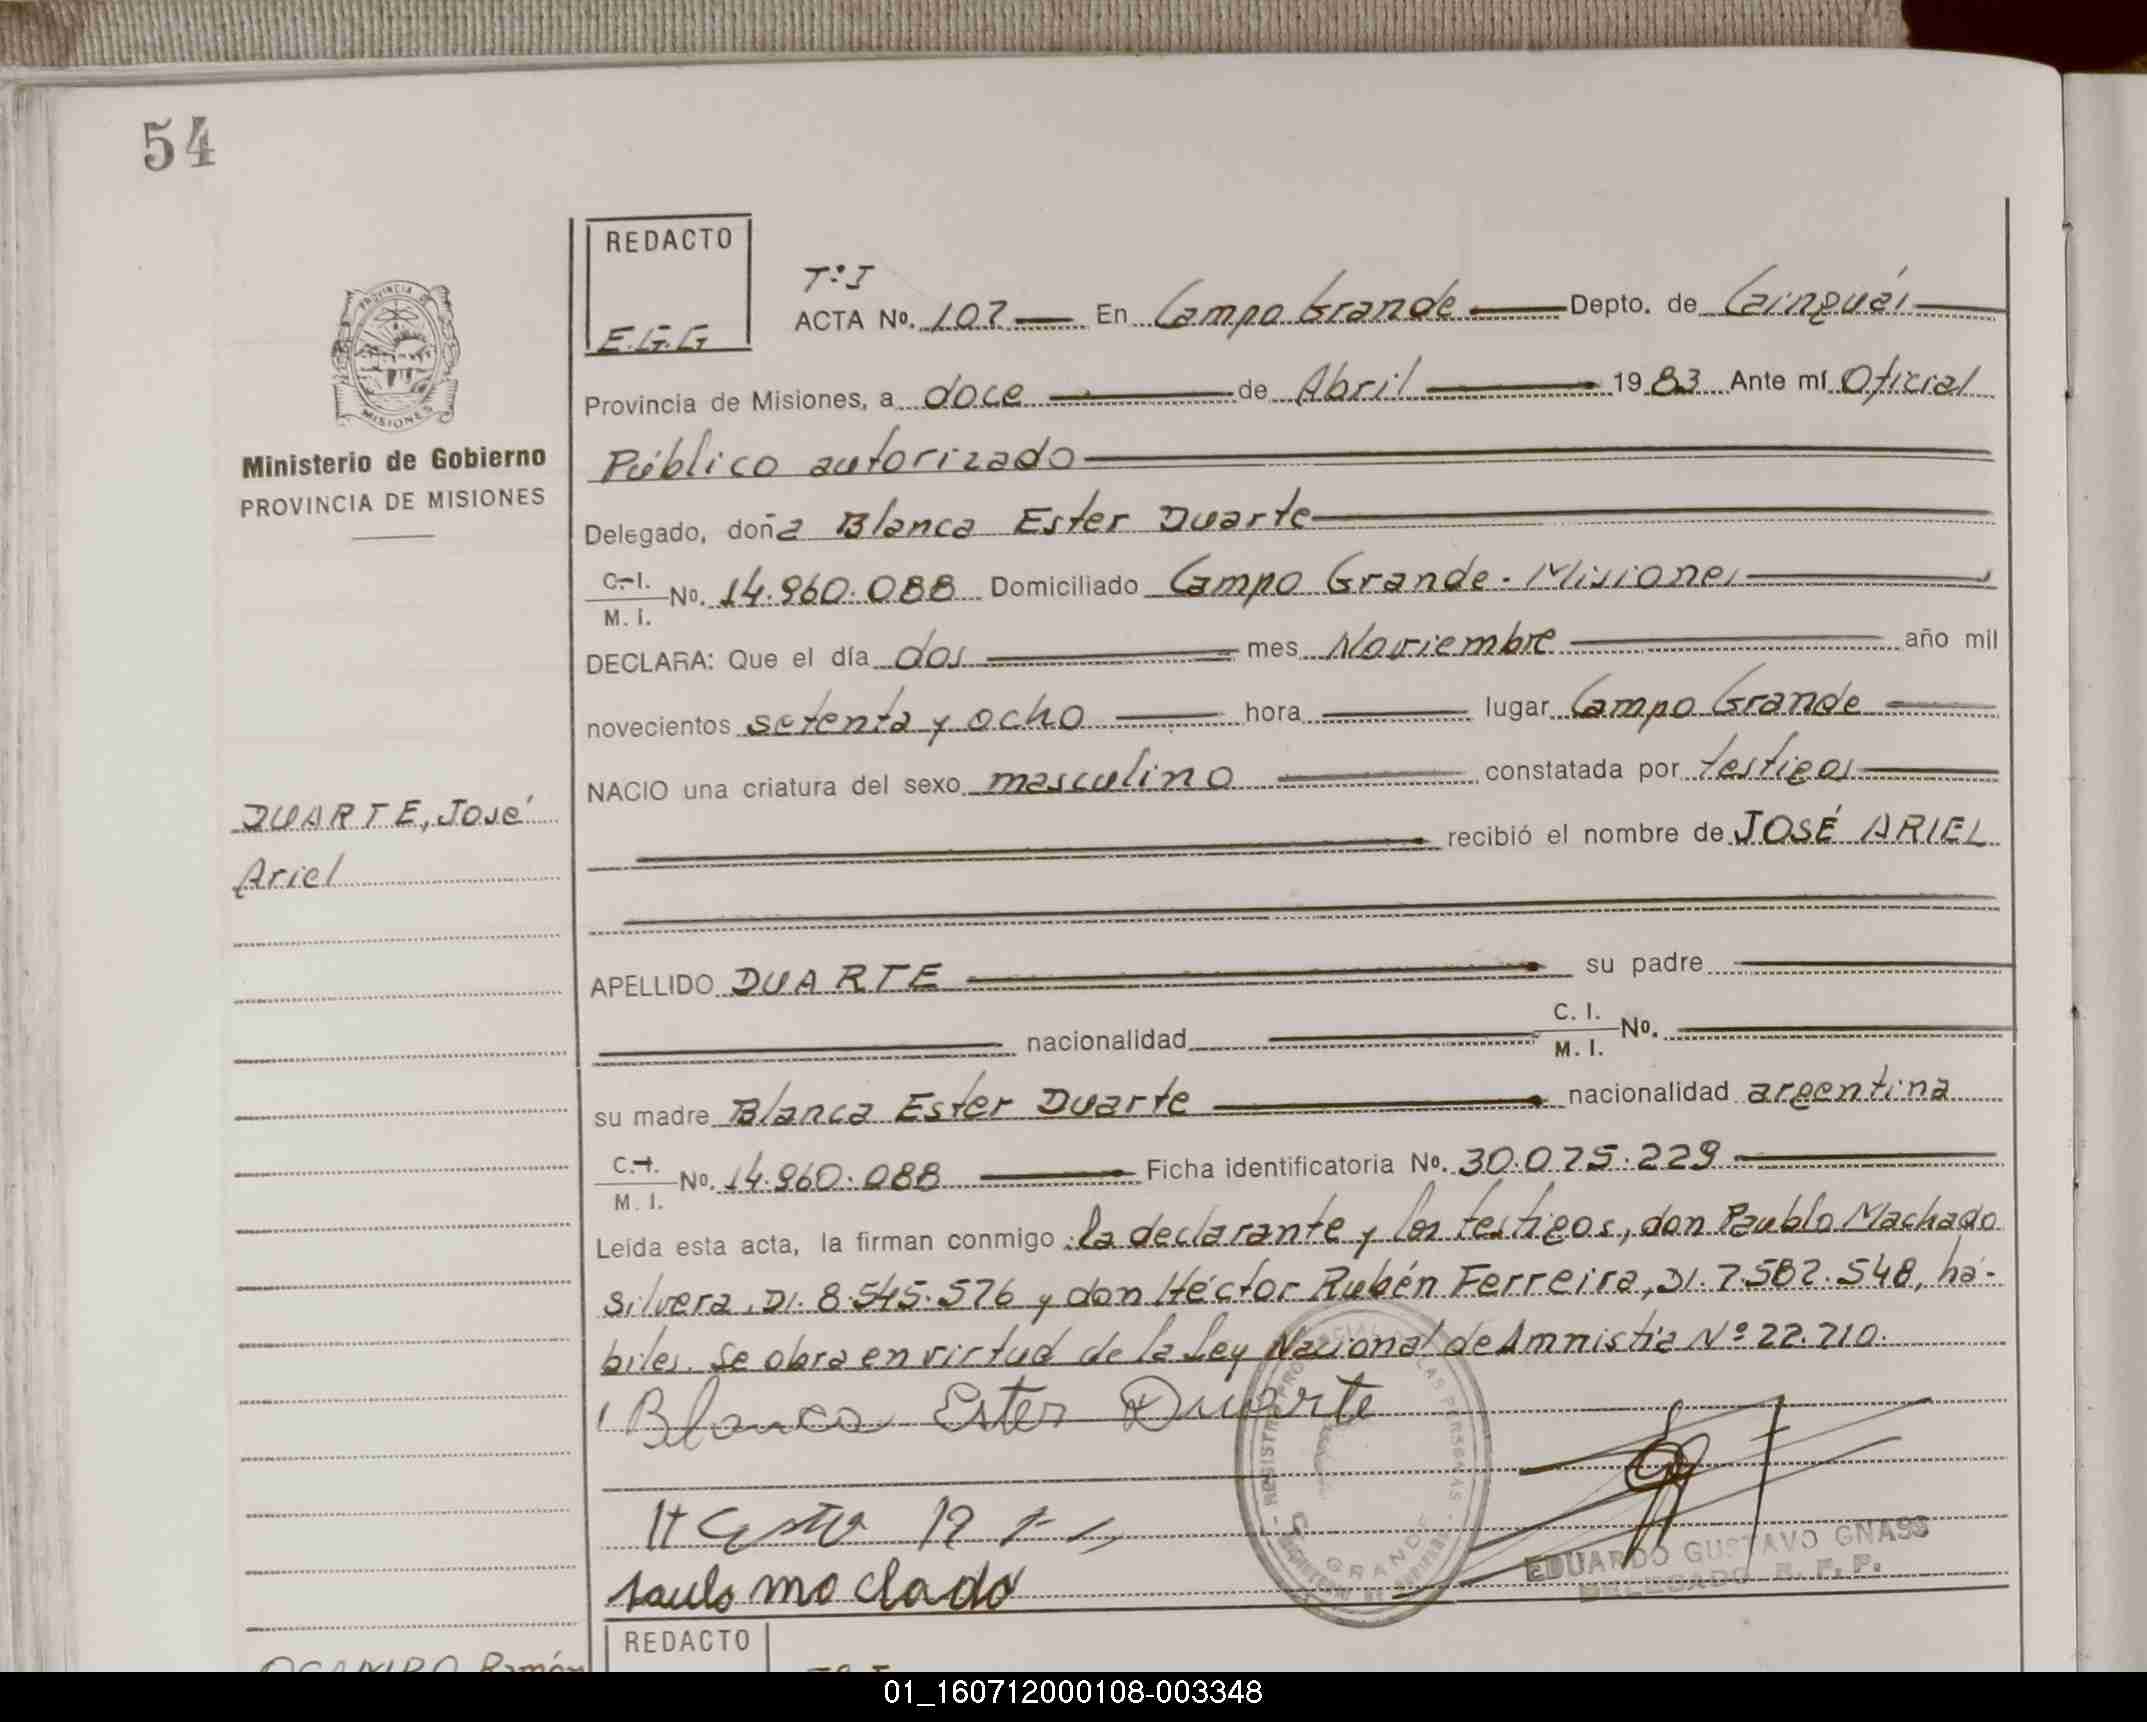 54
REDACTO
E.G.G
Tº I
ACTA Nº. 107 En Campo Grande Depto. de Cainguás
Provincia de Misiones, a doce de Abril 1983 Ante mí Oficial
Público autorizado
Delegado, doña Blanca Ester Duarte
C.I. M.I. Nº. 14.960.088 Domiciliado Campo Grande - Misiones
DECLARA: Que el día dos mes Noviembre año mil
novecientos setenta y ocho hora lugar Campo Grande
NACIO una criatura del sexo masculino constatada por testigos
recibió el nombre de JOSÉ ARIEL
APELLIDO DUARTE su padre
nacionalidad C. I. M. I. Nº.
su madre Blanca Ester Duarte nacionalidad argentina
C.I. M. I. Nº. 14.960.088 Ficha identificatoria Nº. 30.075.229
Leída esta acta, la firman conmigo: la declarante y los testigos, don Paublo Machado
silvera, DI. 8.545.576 y don Héctor Rubén Ferreira, DI. 7.582.548, há-
biles. Se obra en virtud de la Ley Nacional de Amnistía Nº 22.710.
Blanca Ester Duarte
EDUARDO GUSTAVO GNASS
DELEGADO R. P. P.
PROVINCIA DE MISIONES
Ministerio de Gobierno
PROVINCIA DE MISIONES
DUARTE, José
Ariel
REDACTO
01_160712000108-003348